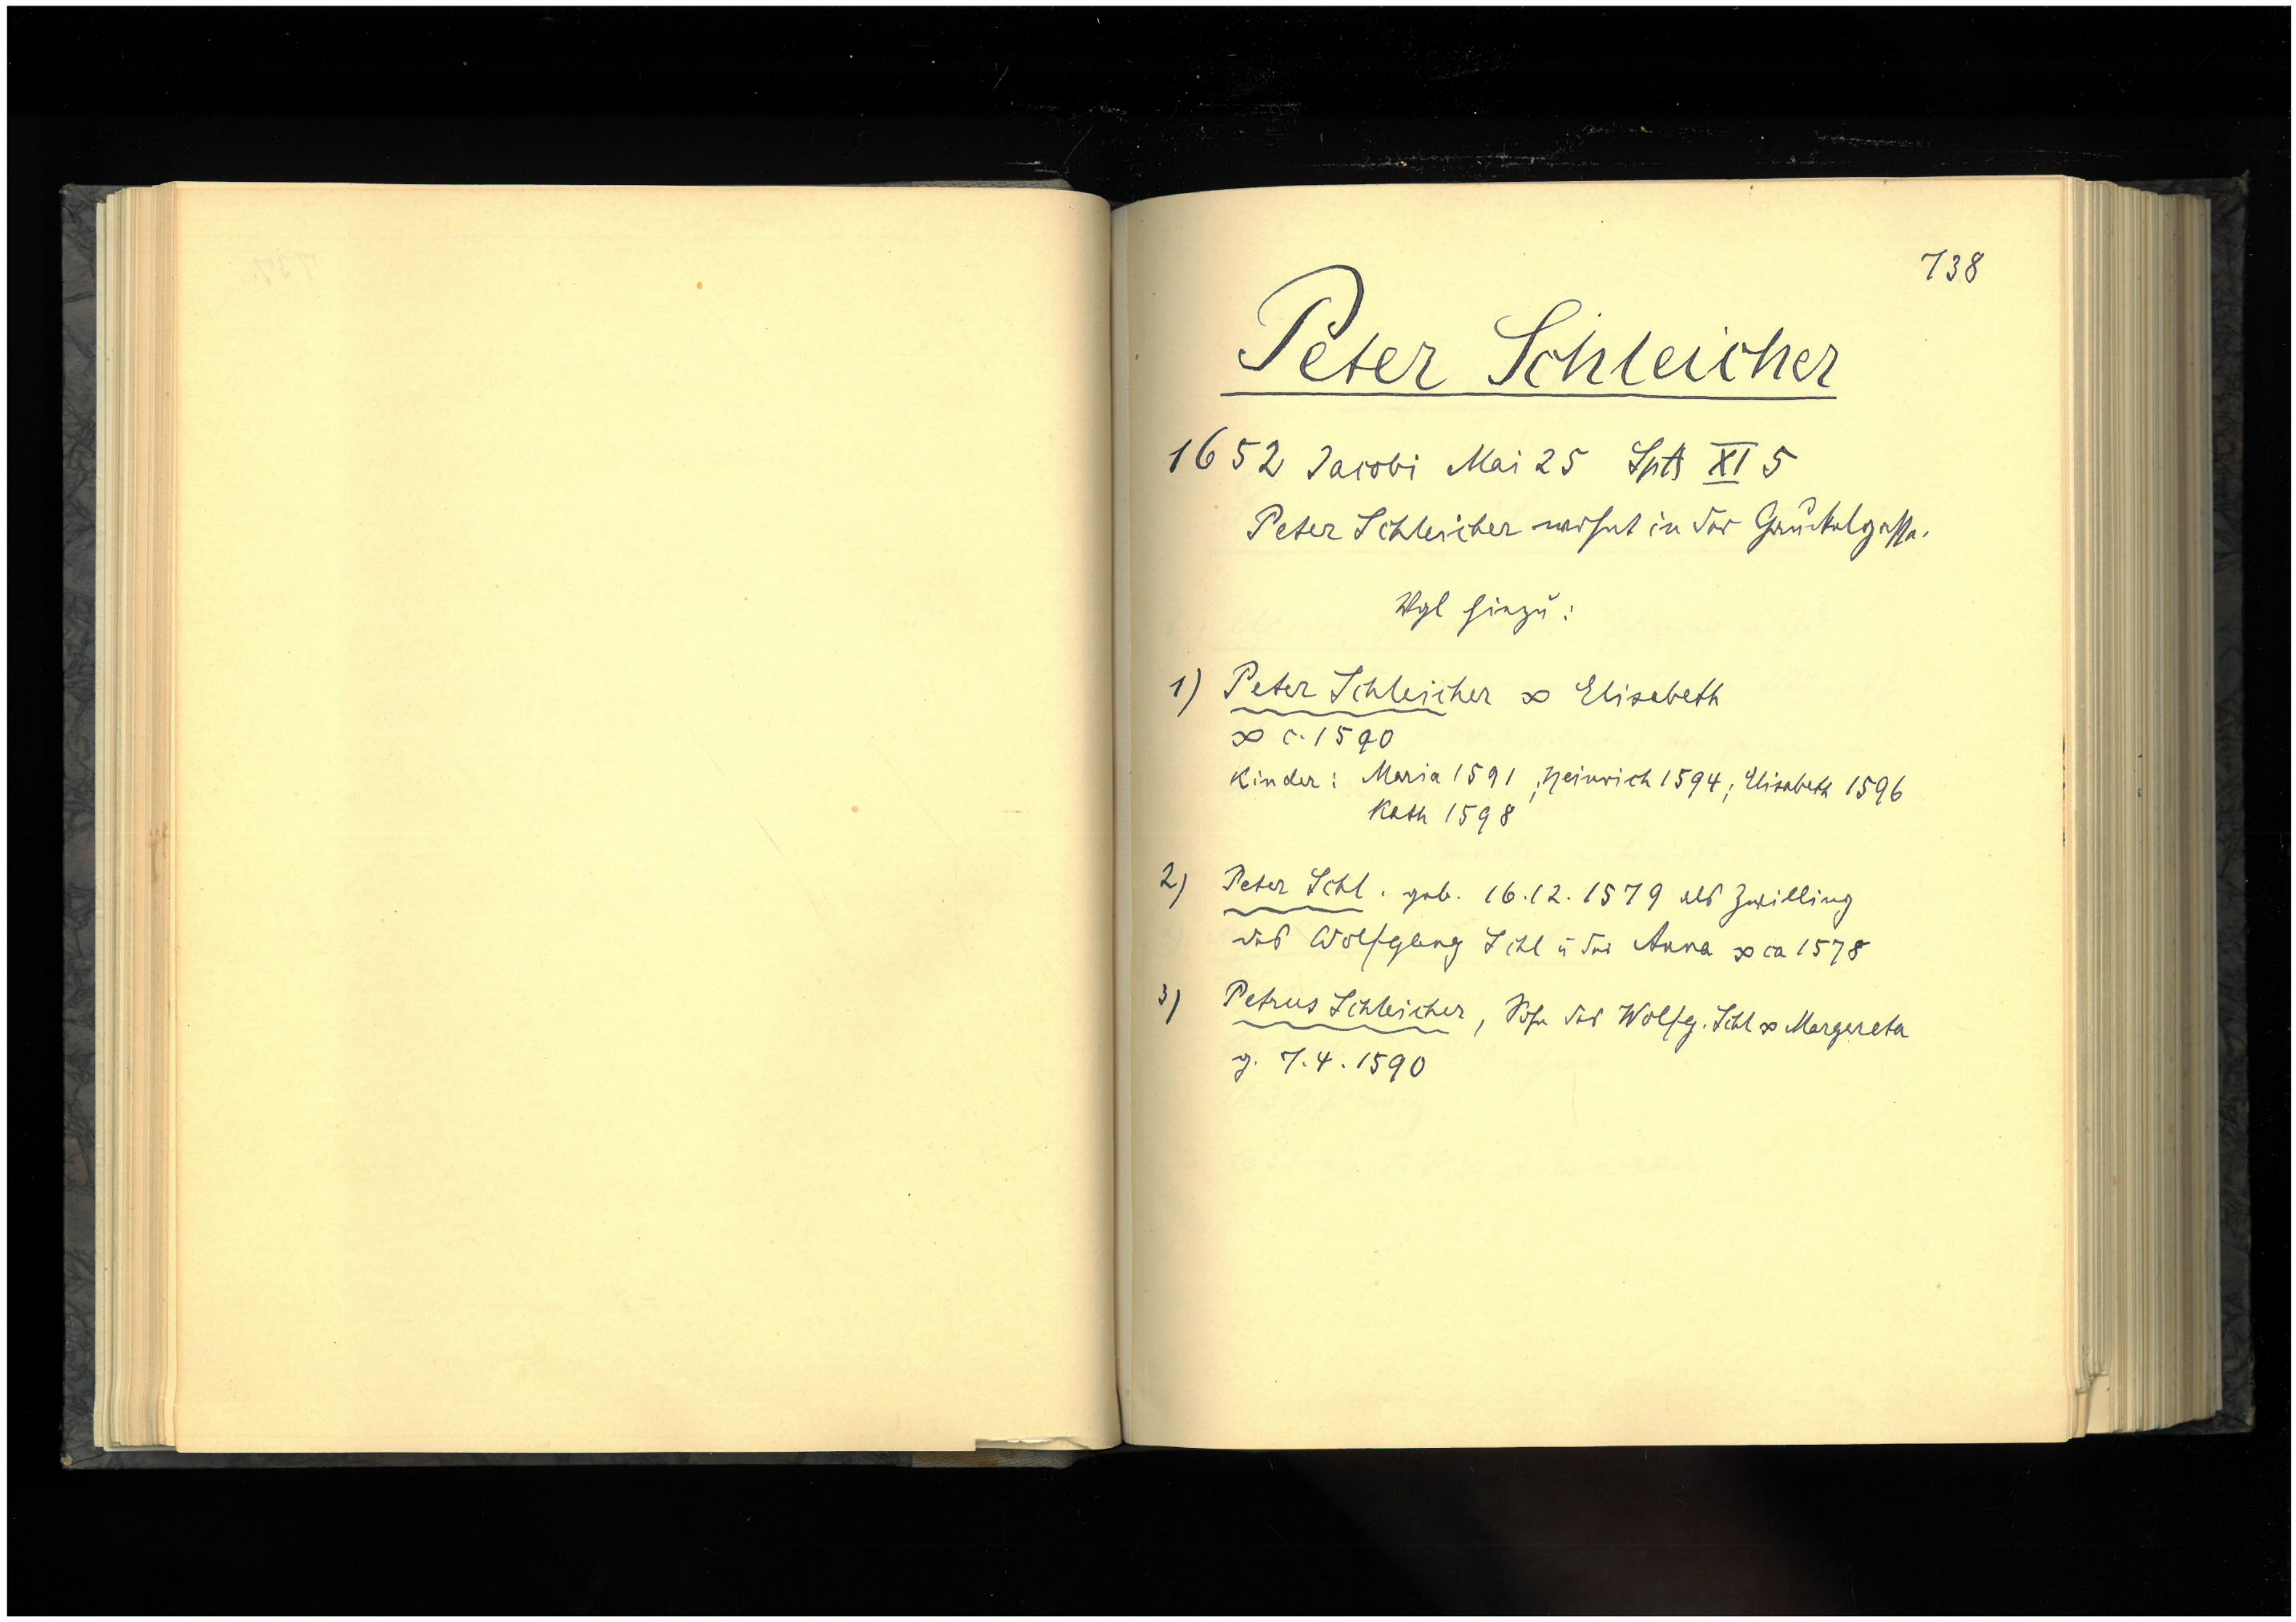 738
Peter Schleicher
1652 Jacobi Mai 25 XI 5
Peter Schleicher wohnt in der
Vgl hinzu:
1) Peter Schleicher ∞ Elisabeth
∞ c. 1590
Kinder: Maria 1591; Heinrich 1594; Elisabeth 1596
Kath 1598
2) Peter Schl. geb. 16.12.1579 als Zwilling
des Wolfgang Schl u der Anna ∞ ca 1578
3) Petrus Schleicher, Sohn des Wolfg. Schl ∞ Margareta
g. 7.4.1590